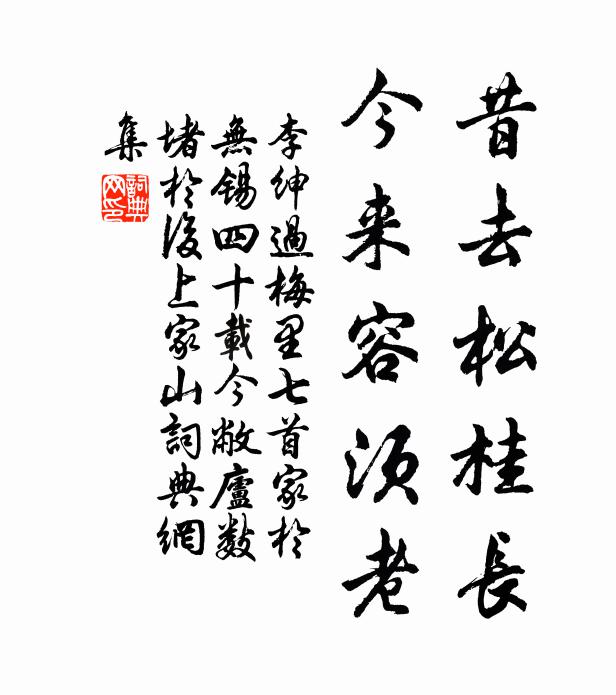 昔去松桂長
今来容須老
李紳過梅里七首家於
無錫四十載今敝廬數
堵於後上家山詞典網
集
詞典
网印